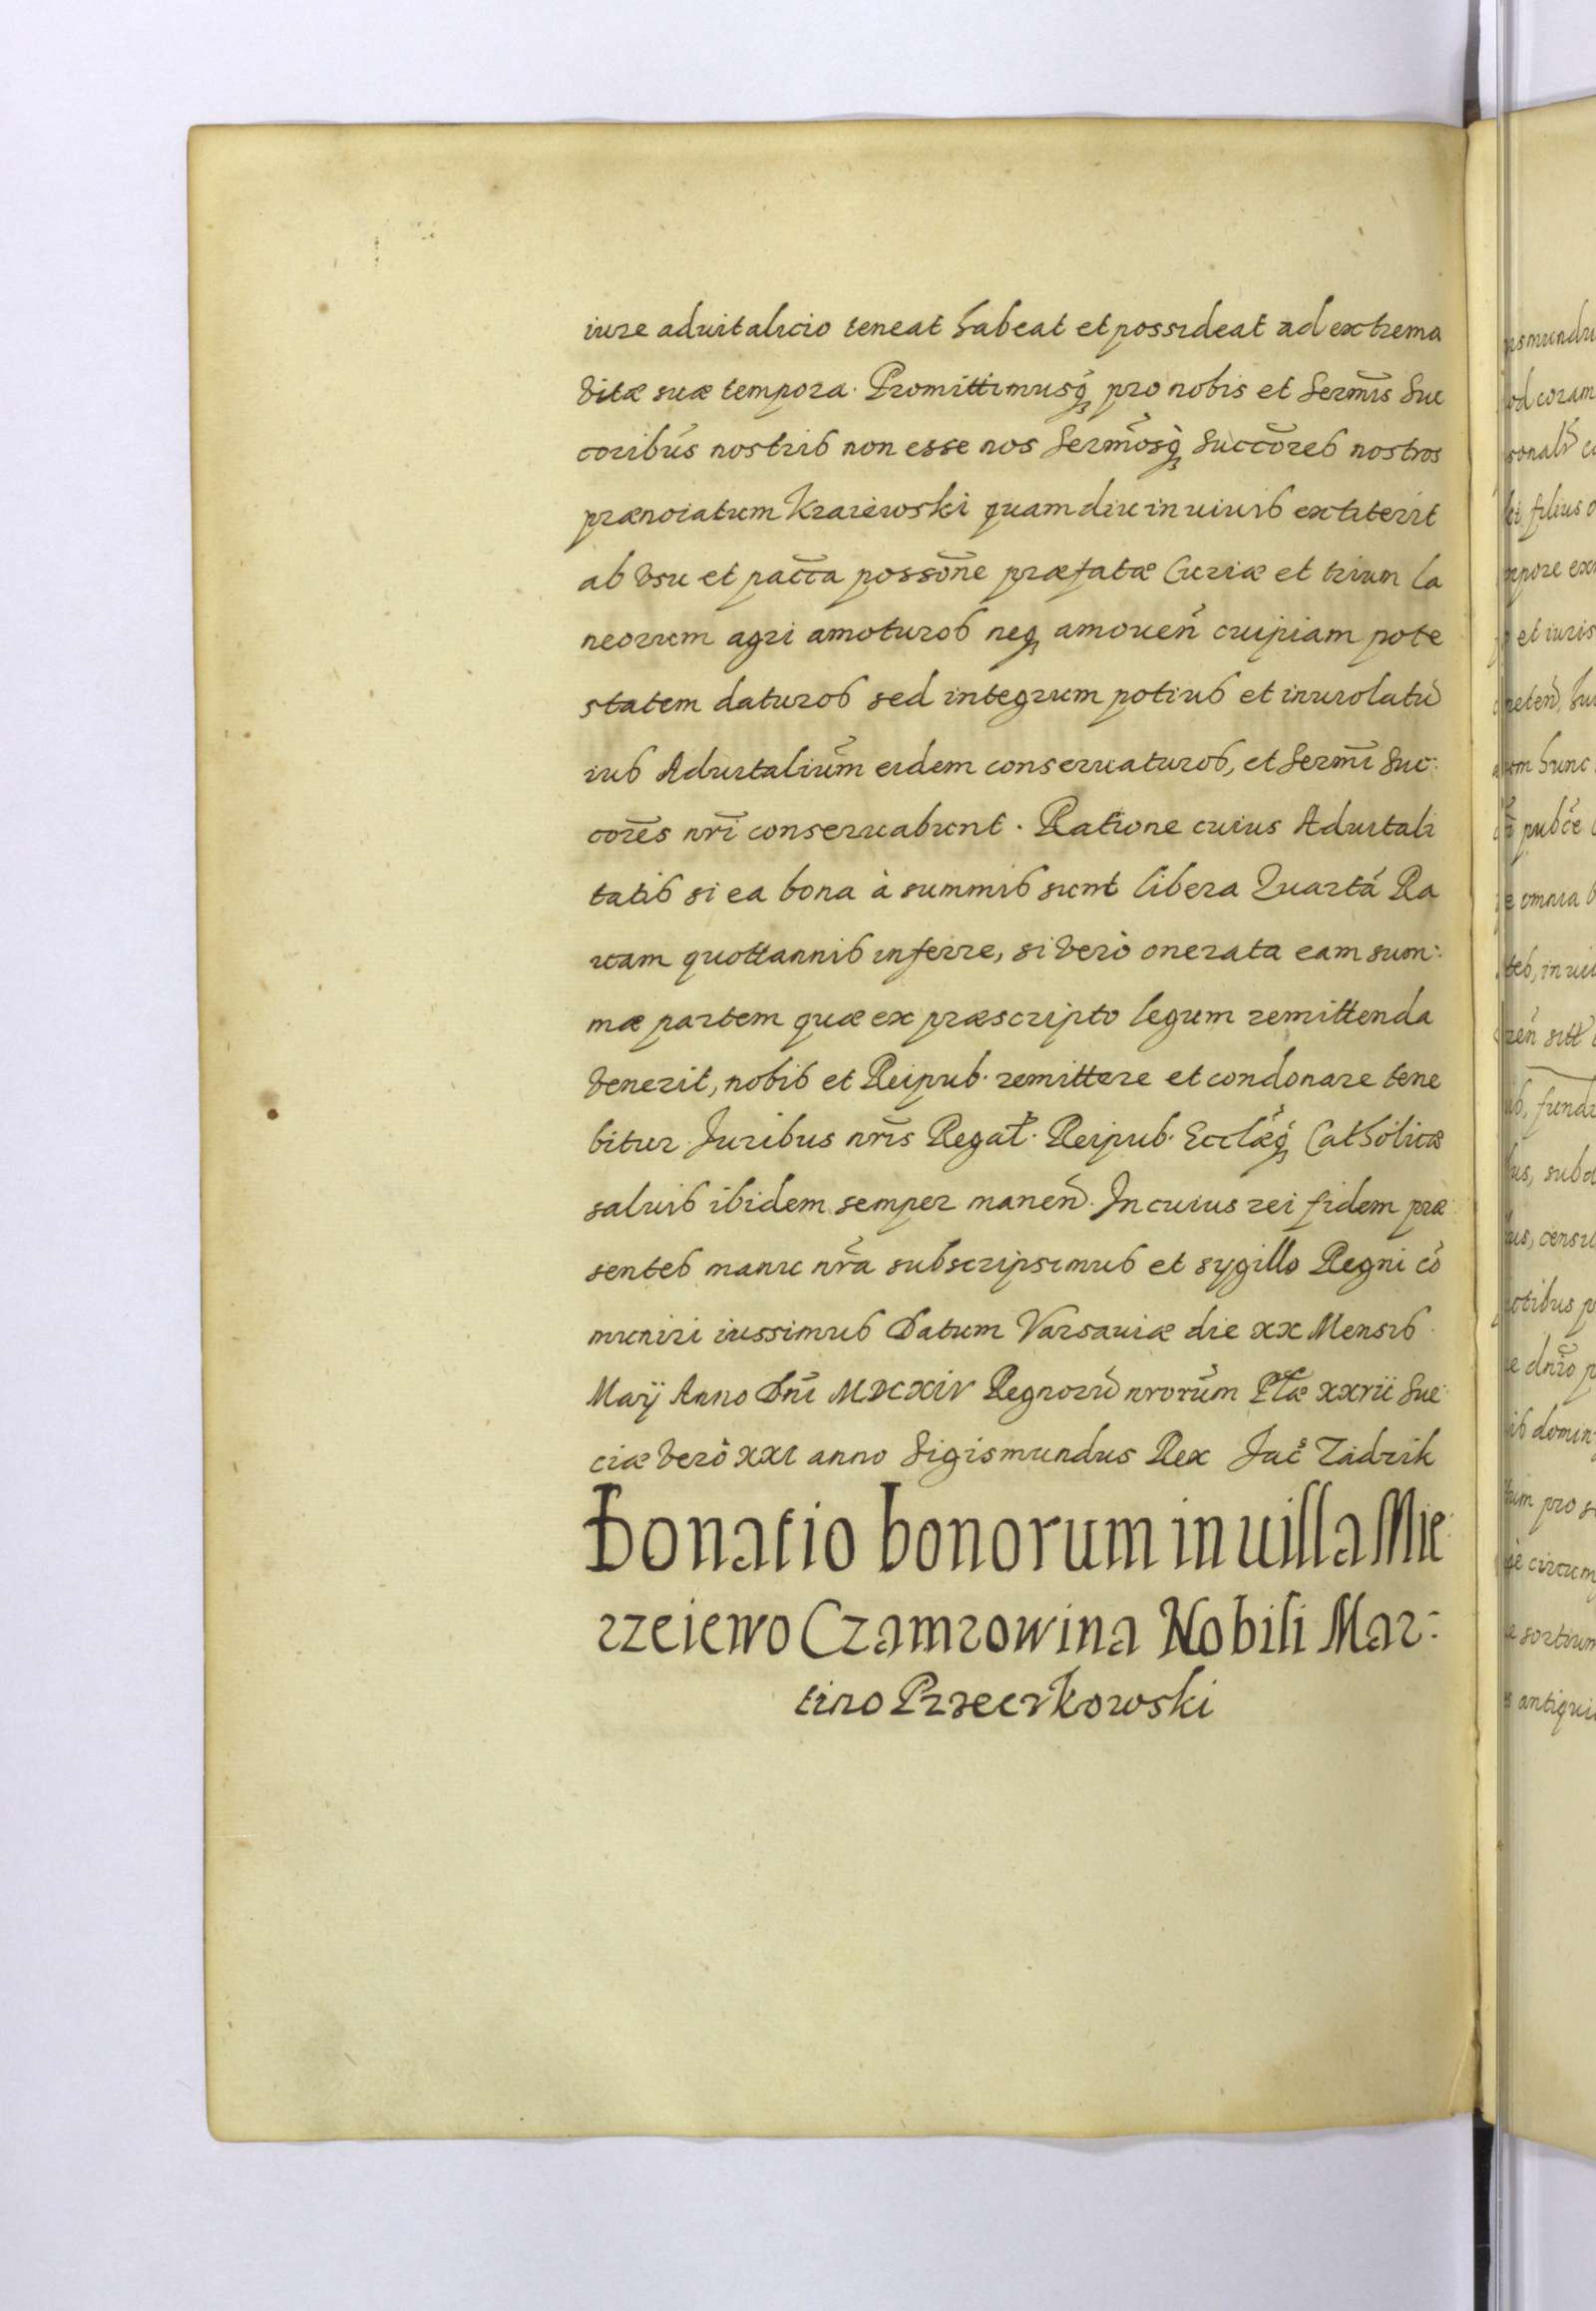 iure aduitalicio teneat habeat et possideat ad extrema
vitæ suæ tempora. Promittimusq́ꝫ pro nobis et Serm̃is Suc
coribus nostris non esse nos Serm̃osq́ꝫ Succ̃ores nostros
prænoiatum Kraiewski quamdiu in uiuis extiterit
ab vsu et pacc̃a possõne præfatæ Curiæ et trium la
neorum agri amoturos neqꝫ amouen̄ cuipiam pote
statem daturos sed integrum potius et inuiolatũ
ius Aduitaliũm eidem conseruaturos, et Serm̃i Suc:
cores nr̃i conseruabunt. Ratione cuius Aduitali
tatis si ea bona à summis sunt libera Quartá Ra
uam quottannis inferre, si verò onerata eam sum:
mæ partem quæ ex præscripto legum remittenda
venerit, nobis et Reipub. remittere et condonare tene
bitur Juribus nr̃is Regal̃. Reipub. Ecclæq́ꝫ Catholicæ
saluis ibidem semper manen̄. In cuius rei fidem præ
sentes manu nr̃a subscripsimus et sygillo Regni cõ
muniri iussimus Datum Varsauiæ die xx Mensis
Maÿ Anno Dnĩ MDCXIV Regnorũ nrorũm Pl̃æ xxvii Sue
ciæ verò xxi anno Sigismundus Rex Jac̃ Zadzik
Donatio bonorum in uilla Mie
rzeiewo Czamrowina Nobili Mar:
tino Przeczkowski